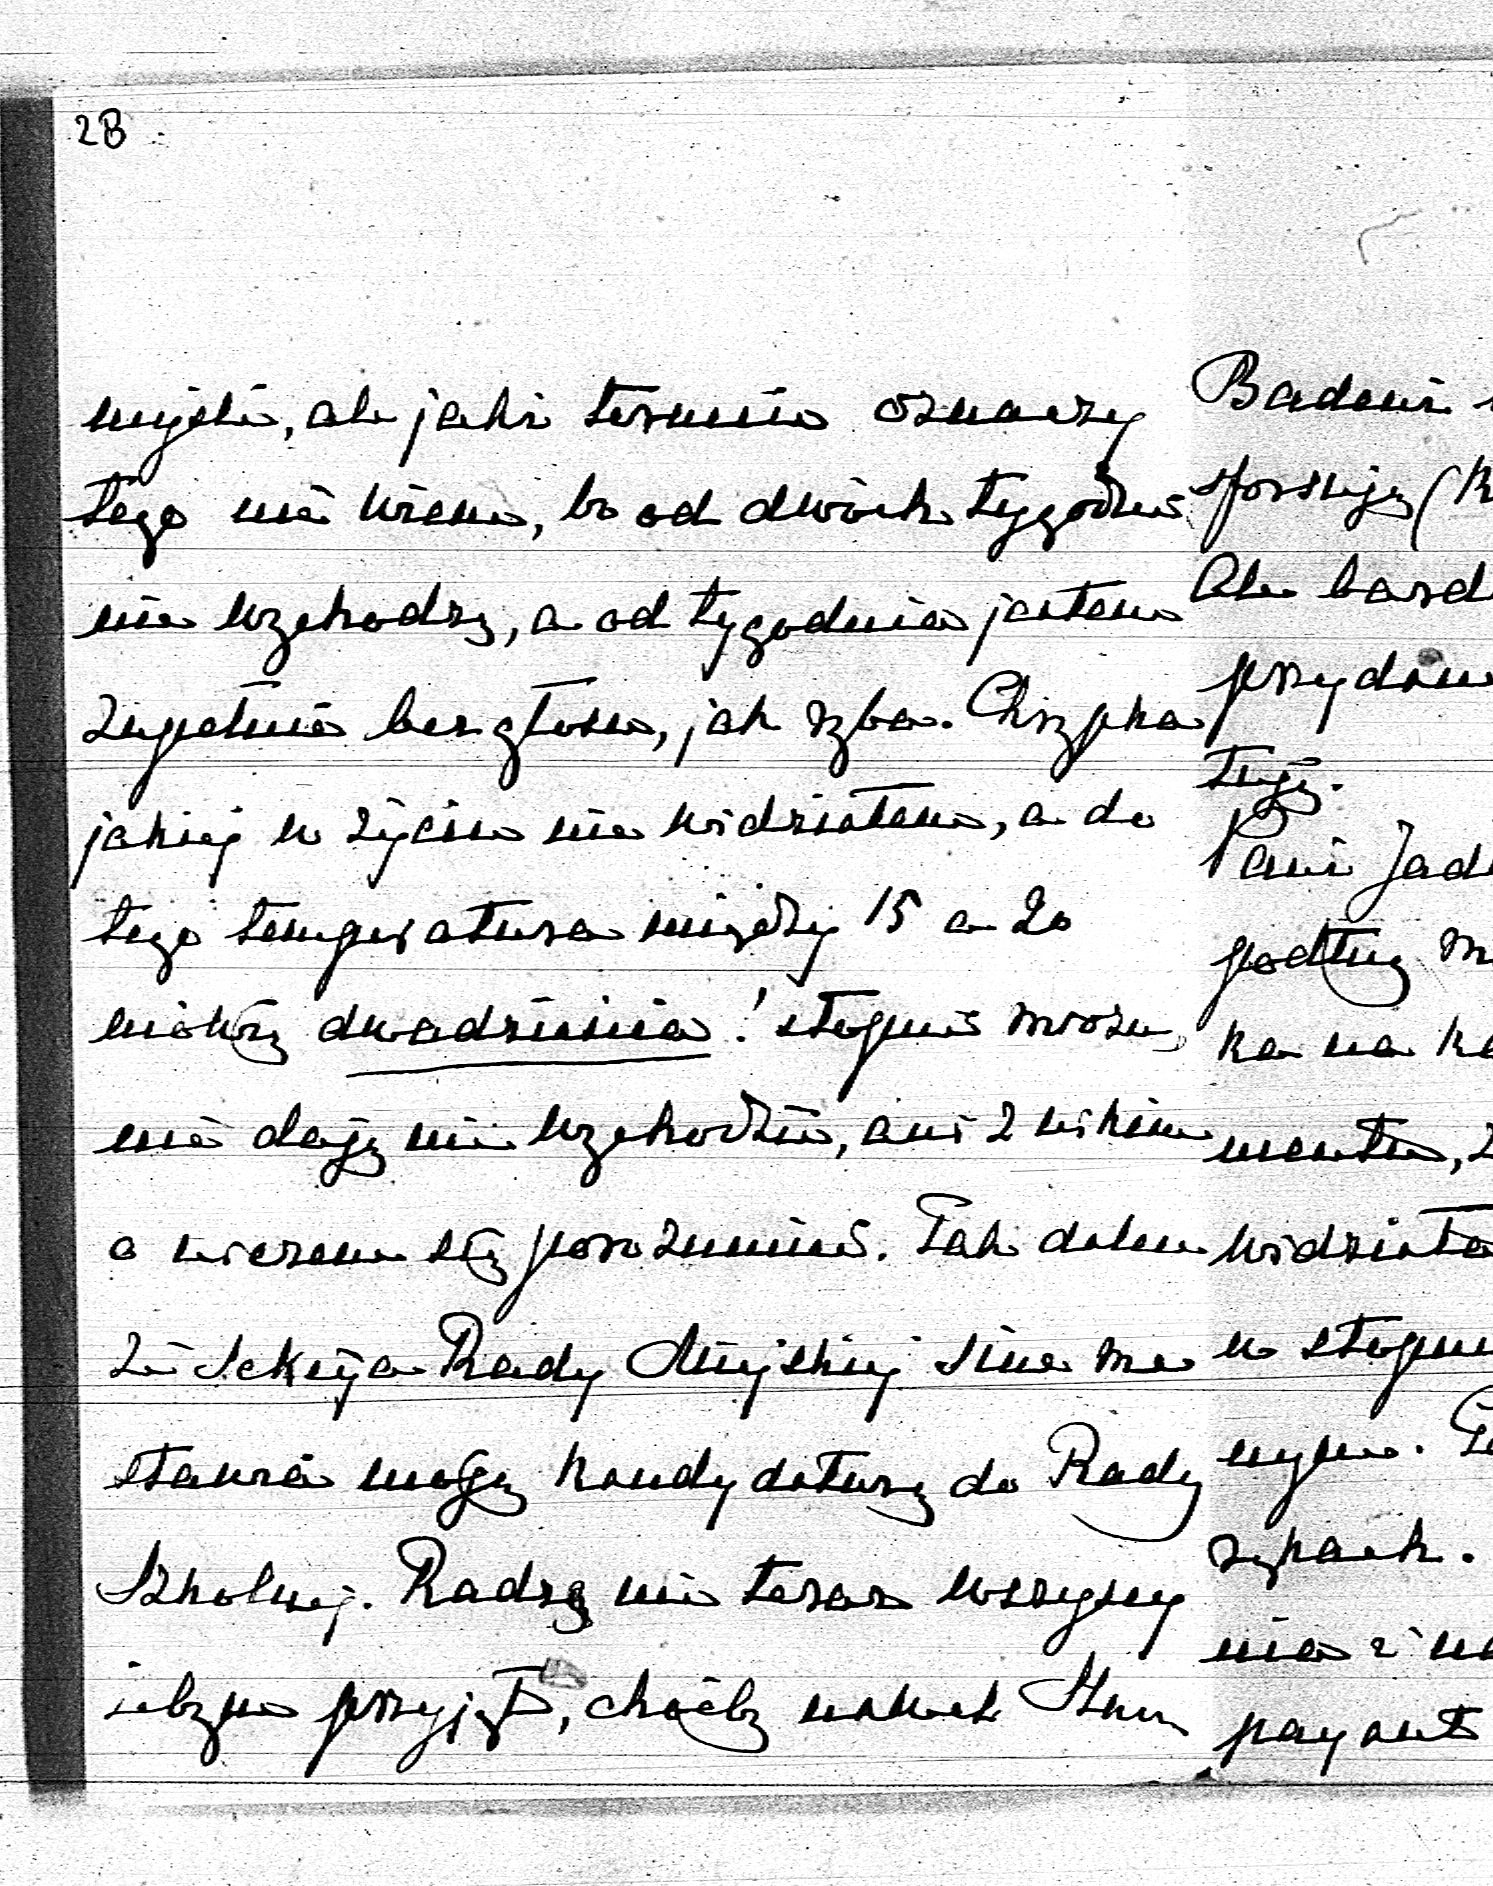 28
myśli, ale jaki termin oznaczy
tego nie wiem, bo od dwóch tygodni
nie wychodzę, a od tygodnia jestem
zupełnie bez głosu, jak ryba. Chrypka
jakiej w życiu nie widziałem, a do
tego temperatura między 15 a 20
mówię dwadzieścia! stopni mrozu,
nie dają mi wychodzić, ani z nikim
o niczem się porozumieć. Tak dalece
że Sekcya Rady Miejskiej Sine me
stawia moją kandydaturę do Rady
Szkolnej. Radzą mi teraz wszyscy
żebym przyjął, choćby nawet
Badeni
Ale bard
przydom
tuję.
Pani Jad
podług m
ka na ko
mentu, z
widziała
w stopni
nym.
rękach.
nia i